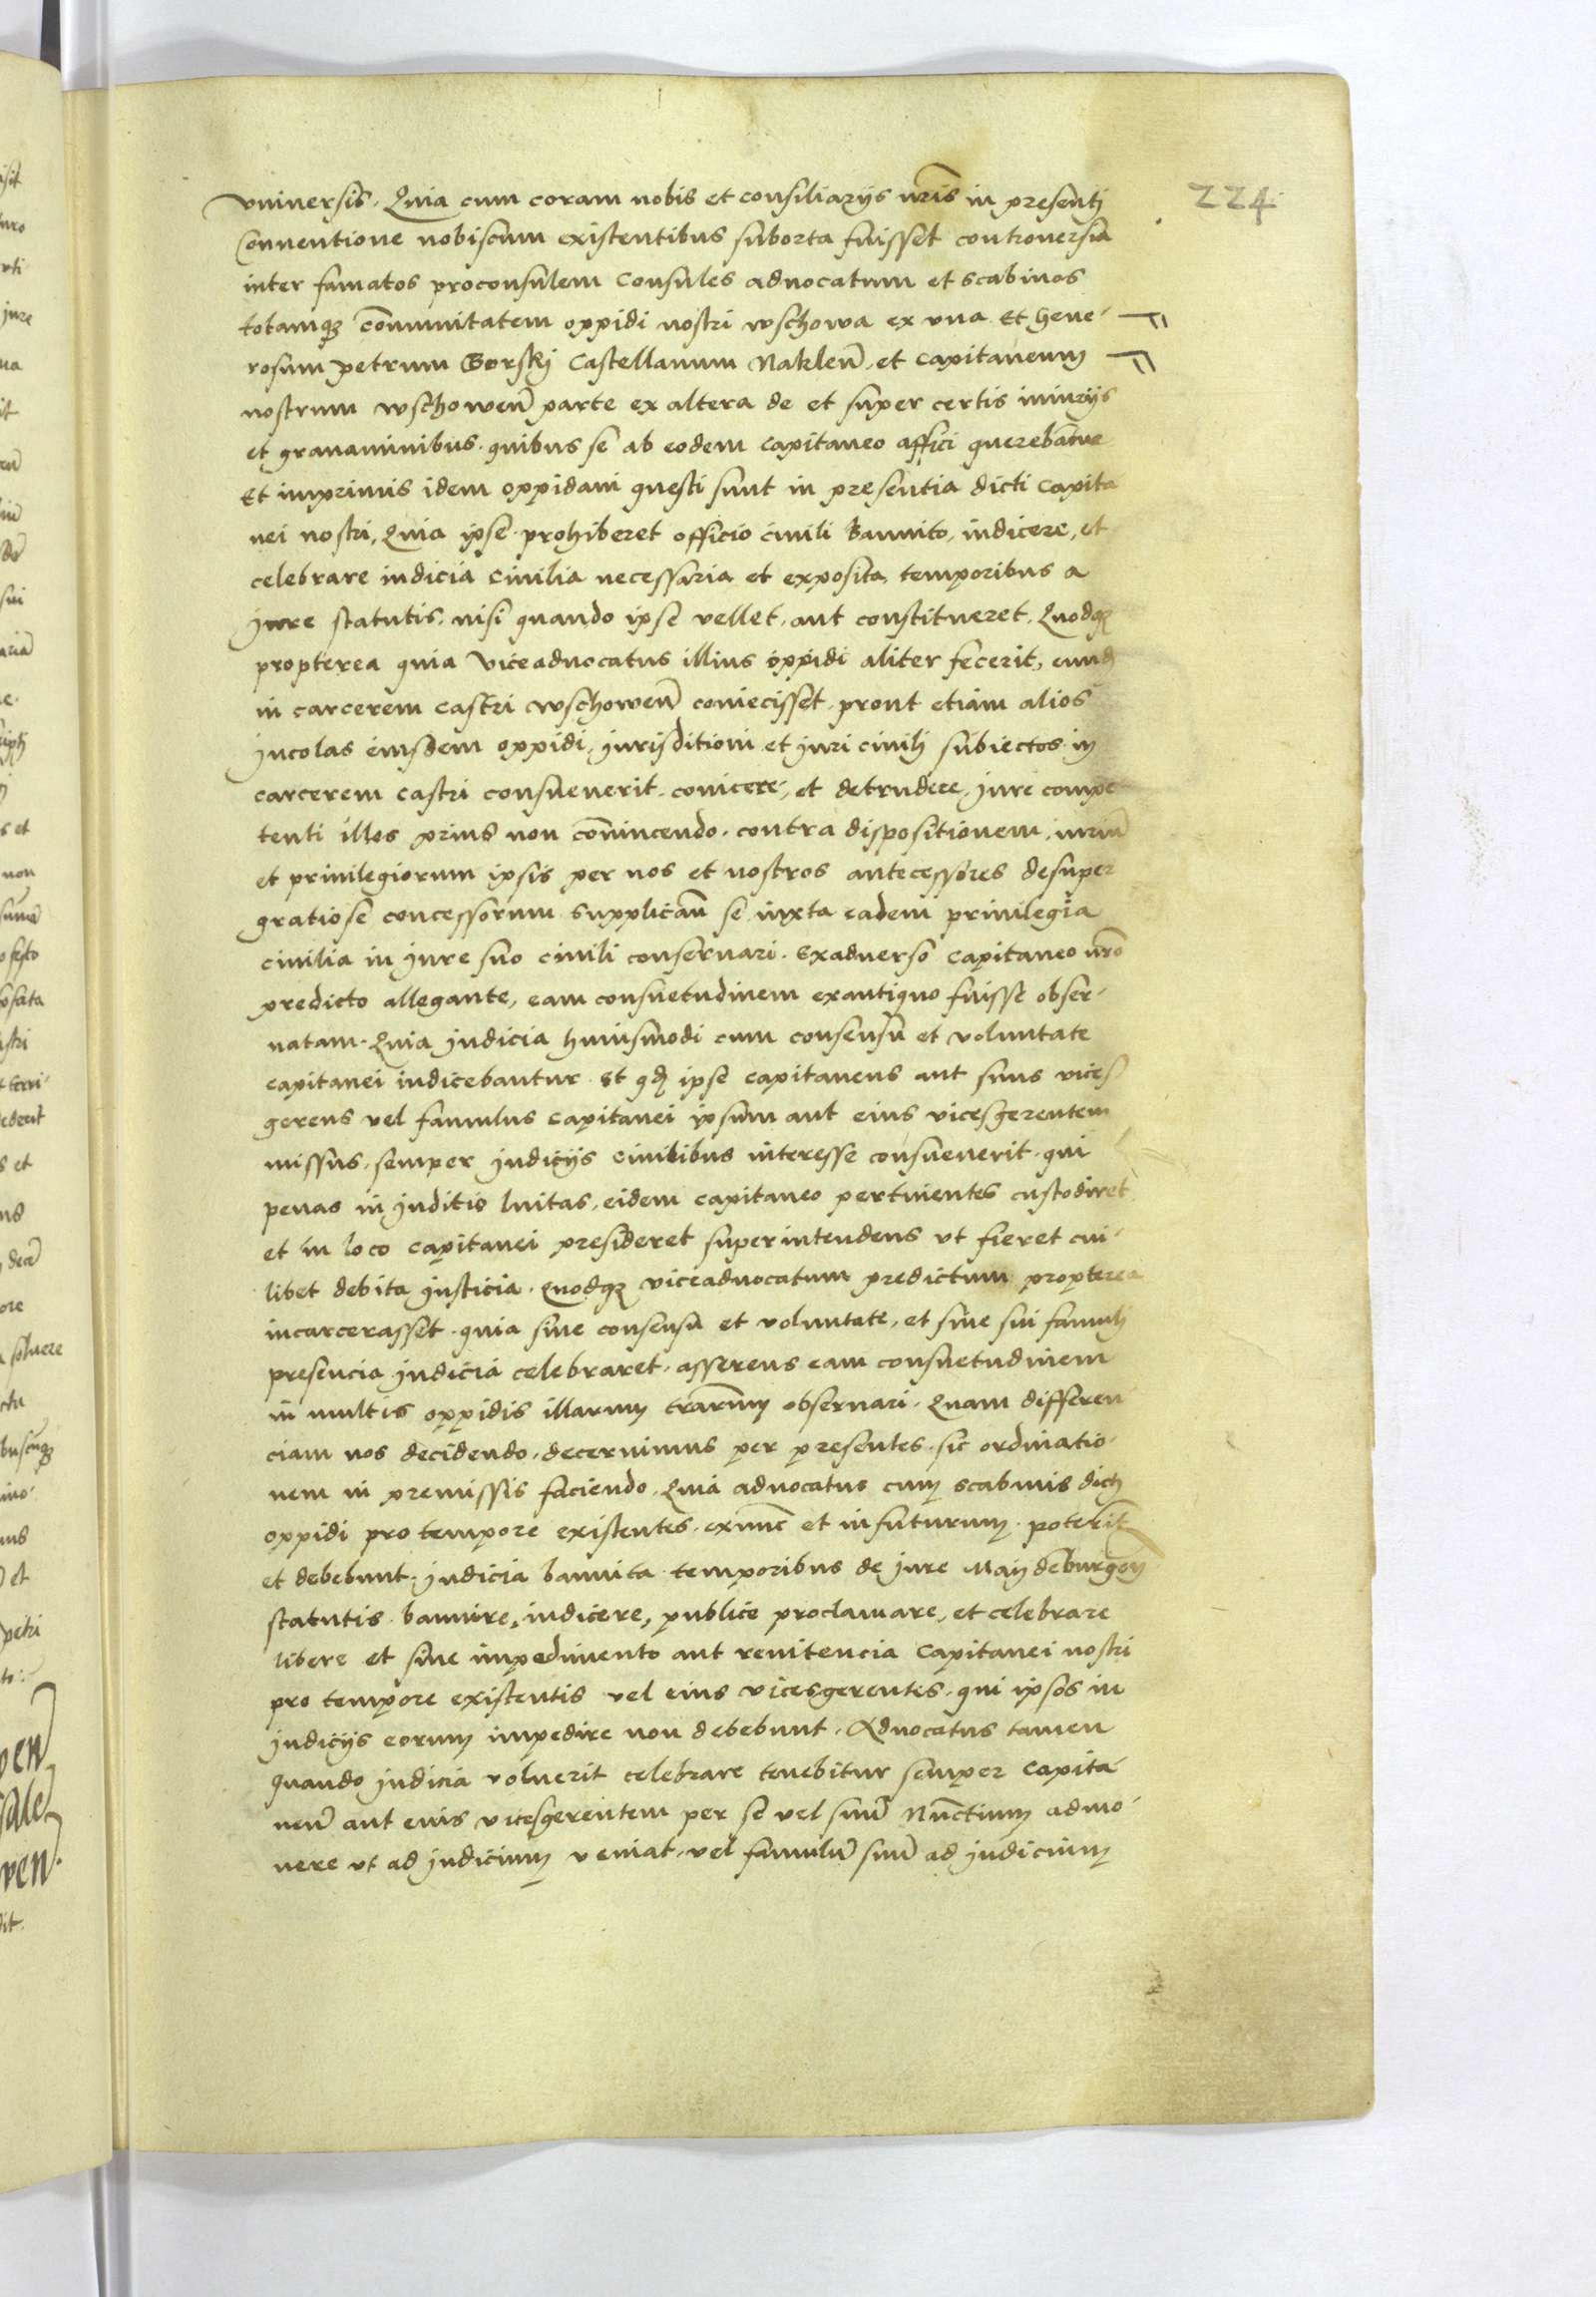 224
vniuersis. Quia cum coram nobis et consiliarijs nr̃is in presentj
Conuentione nobiscum existentibus suborta fuisset controuersia
inter famatos proconsulem Consules aduocatum et scabinos
totamqʒ cõmunitatem oppidi nostri wschowa ex vna Et Gene-
rosum petrum Gorskj Castellanum Naklen̄. et capitaneum
nostrum wschowen̄ parte ex altera de et super certis iniurijs
et grauaminibus. quibus se ab eodem capitaneo affici querebãtur
Et imprimis idem oppidani questi sunt in presentia dicti capita
nei nostri, Quia ipse prohiberet officio ciuili Bannito, indicere, et
celebrare iudicia ciuilia necessaria et exposita, temporibus a
jure statutis. nisi quando ipse vellet, aut constitueret. Quodqʒ
propterea quia viceaduocatus illius oppidi aliter fecerit, eund̃
in carcerem castri wschowen̄ coniecisset. prout etiam alios
jncolas eiusdem oppidi, jurisditioni et juri ciuilj subiectos in
carcerem castri consueuerit. conicere, et detrudere, jure compe
tenti illos prius non cõnincendo. contra dispositionem iuriũ
et priuilegiorum ipsis per nos et nostros antecessores desuper
gratiose concessorum supplican̄ se iuxta eadem priuilegia
ciuilia in jure suo ciuili conseruari. Exaduerso capitaneo nr̃o
predicto allegante, eam consuetudinem exantiquo fuisse obser-
uatam. Quia judicia huiusmodi cum consensu et voluntate
capitanei indicebantur. Et qđ ipse capitaneus aut suus vices
gerens vel famulus capitanei ipsum aut eius vicesgerentem
missus, semper judicijs ciuilibus interesse consueuerit. qui
penas in juditis luitas, eidem capitaneo pertinentes custodiret
et in loco capitanei presideret superintendens vt fieret cui-
libet debita justicia. Quodqʒ viceaduocatum predictum propterea
incarcerasset. quia sine consensu et voluntate, et sine sui famulj
presencia judicia celebraret. asserens eam consuetudinem
in multis oppidis illarum trãrum obseruari. Quam differen
ciam nos decidendo. decernimus per presentes. sic ordinatio-
nem in premissis faciendo. Quia aduocatus cum scabinis dictj
oppidi pro tempore existentes. exnũc et in futurum. poterit
et debebunt. judicia bannita temporibus de jure Maijdeburgen̄
statutis. bannire, indicere, publice proclamare, et celebrare
libere et sine impedimento aut renitencia capitanei nostri
pro tempore existentis vel eius vicesgerentes. qui ipsos in
judicijs eorum impedire non debebunt. Aduocatus tamen
quando judicia voluerit celebrare tenebitur semper capita-
neũ aut euis vicesgerentem per se vel suũ Nũctium admo-
nere vt ad judicium veniat, vel famulũ suũ ad judicium